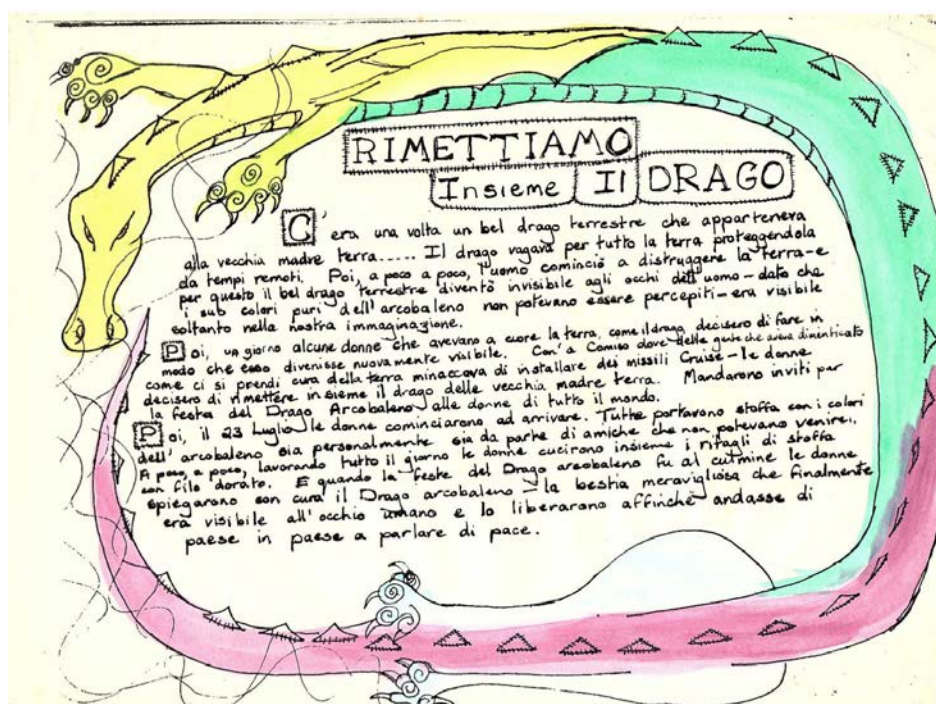 RIMETTIAMO
Insieme Il DRAGO
C'era una volta un bel drago terrestre che apparteneva
alla vecchia madre terra..... Il drago vagava per tutto la terra proteggendola
da tempi remoti. Poi, a poco a poco, l'uomo cominciò a distruggere la terra-e
per questo il bel drago terrestre diventò invisibile agli occhi dell'uomo-dato che
i sub colori puri dell'arcobaleno non potevano essere percepiti-era visibile
soltanto nella nostra immaginazione.
Poi, un giorno alcune donne che avevano a cuore la terra, come il drago, decisero di fare in
modo che esso divenisse nuovamente visibile. Con' a Comiso dove delle gente che aveva dimenticato
come ci si prendi cura della terra minaccava di installare dei missili Cruise-le donne
decisero di rimettere insieme il drago delle vecchia madre terra. Mandarono inviti per
la festa del Drago Arcobaleno alle donne di tutto il mondo.
Poi, il 23 Luglio le donne cominciarono ad arrivare. Tutte portavono stoffa con i colori
dell'arcobaleno sia personalmente sia da parte di amiche che non potevano venire.
A poco, a poco, lavorando tutto il giorno le donne cucirono insieme i ritagli di stoffa
con filo dorato. E quando la feste del Drago arcobaleno fu al culmine le donne
spiegarono con cura il Drago arcobaleno - la bestia meravigliosa che finalmente
era visibile all'occhio umano e lo liberarono affinchè andasse di
paese in paese a parlare di pace.